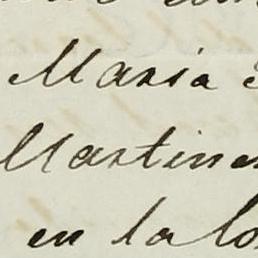 Maria
Martine
en la lo